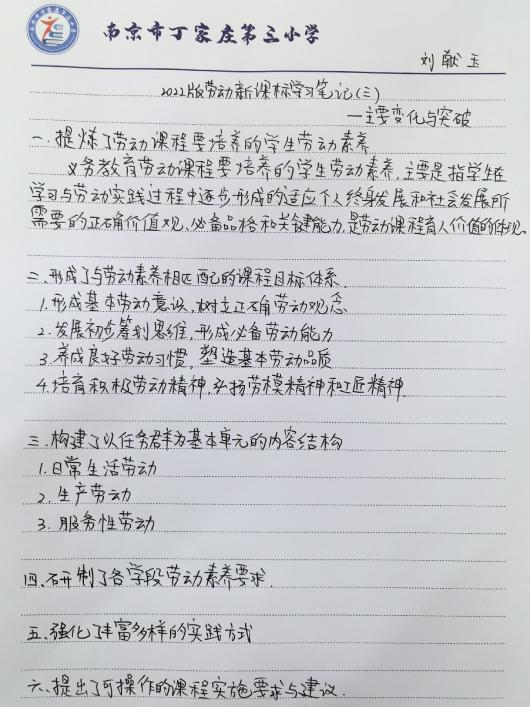 南京市丁家庄第三小学
刘献玉
2022版劳动新课标学习笔记(三)
—主要变化与突破
一、提炼了劳动课程要培养的学生劳动素养
义务教育劳动课程要培养的学生劳动素养，主要是指学生在
学习与劳动实践过程中逐步形成的适应个人终身发展和社会发展所
需要的正确价值观、必备品格和关键能力，是劳动课程育人价值的体现。
二、形成了与劳动素养相匹配的课程目标体系.
1.形成基本劳动意识，树立正确劳动观念
2.发展初步筹划思维，形成必备劳动能力
3.养成良好劳动习惯，塑造基本劳动品质
4.培育积极劳动精神，弘扬劳模精神和工匠精神.
三、构建了以任务群为基本单元的内容结构
1.日常生活劳动
2.生产劳动
3.服务性劳动
四、研制了各学段劳动素养要求.
五、强化了丰富多样的实践方式
六、提出了可操作的课程实施要求与建议.